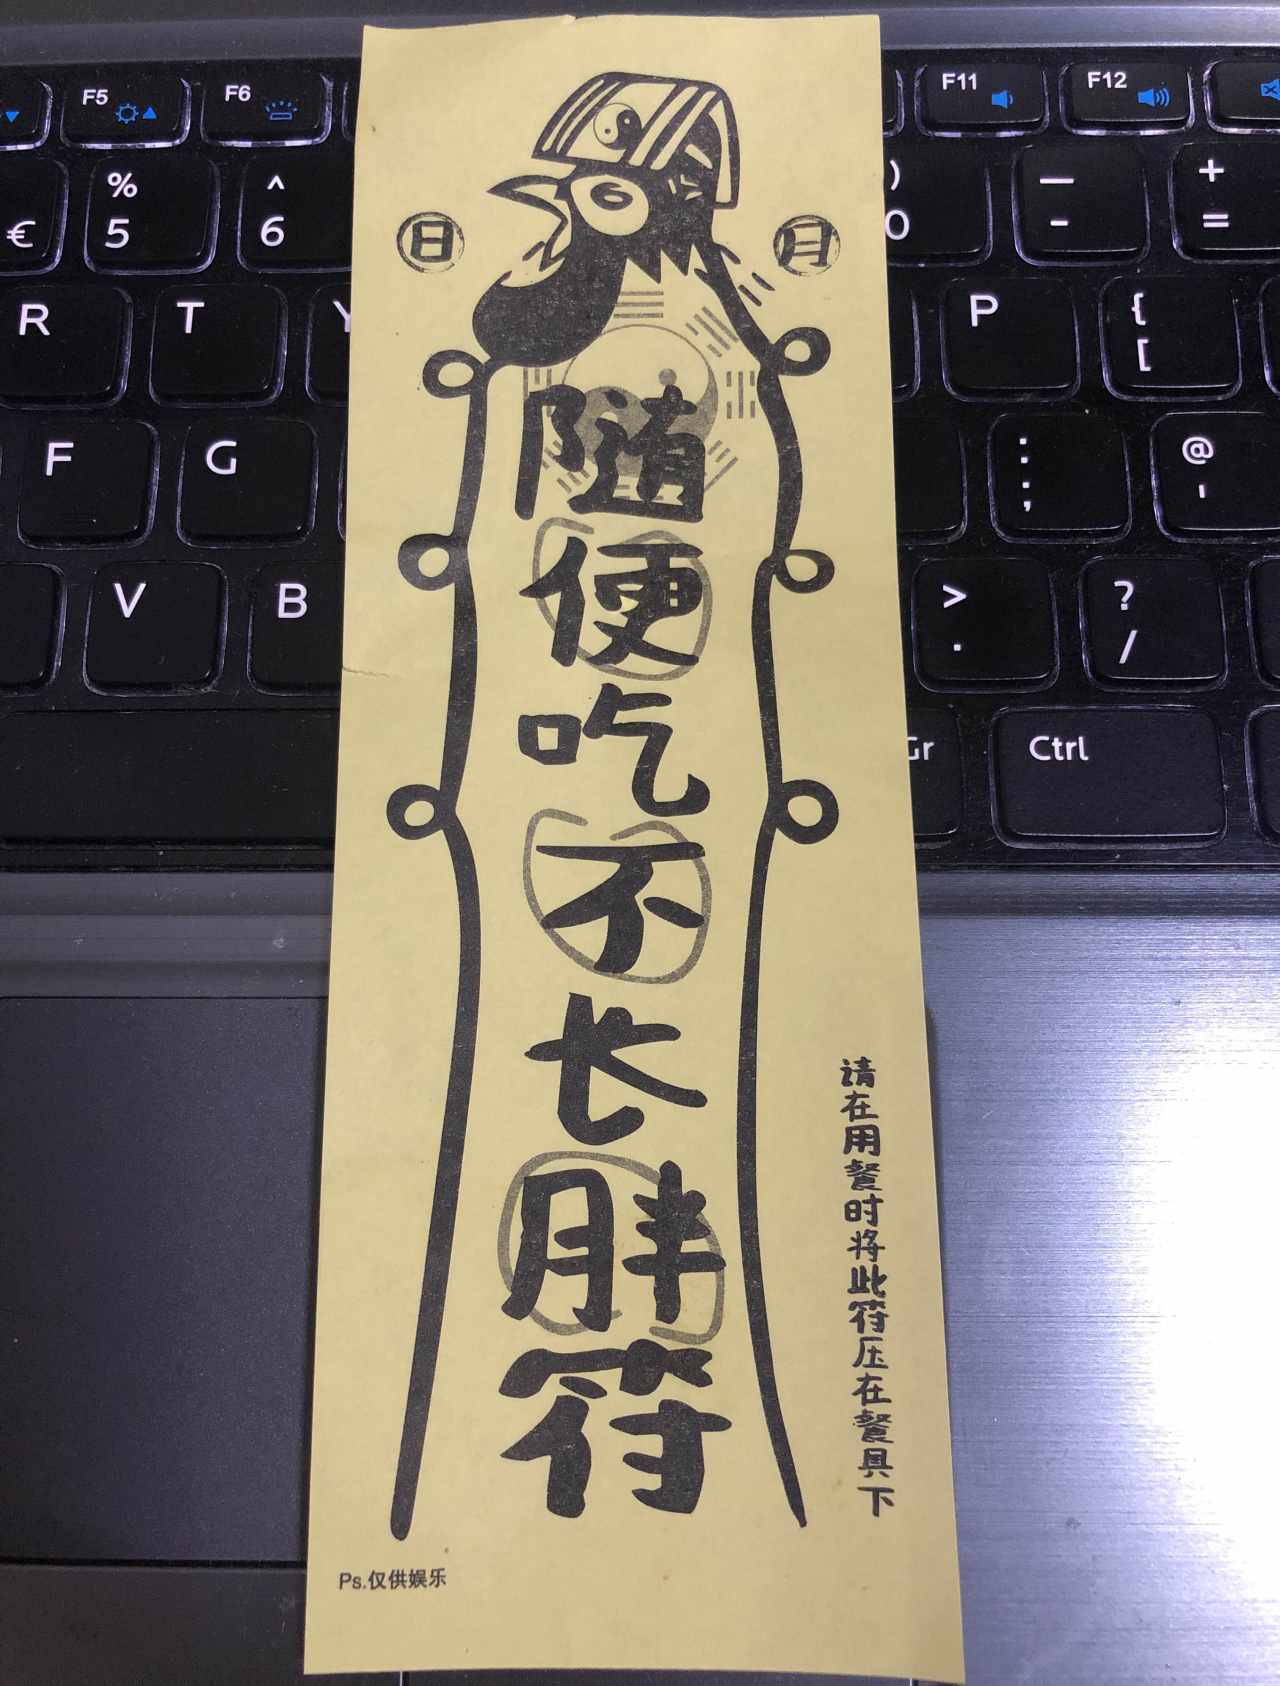 F5
F6
F11
F12
€
%
5
^
6
)
0
—
-
+
=
R
T
Y
P
{
[
F
G
:
;
@
'
V
B
>
.
?
/
Gr
Ctrl
日
月
随便吃不长胖符
请在用餐时将此符压在餐具下
Ps.仅供娱乐